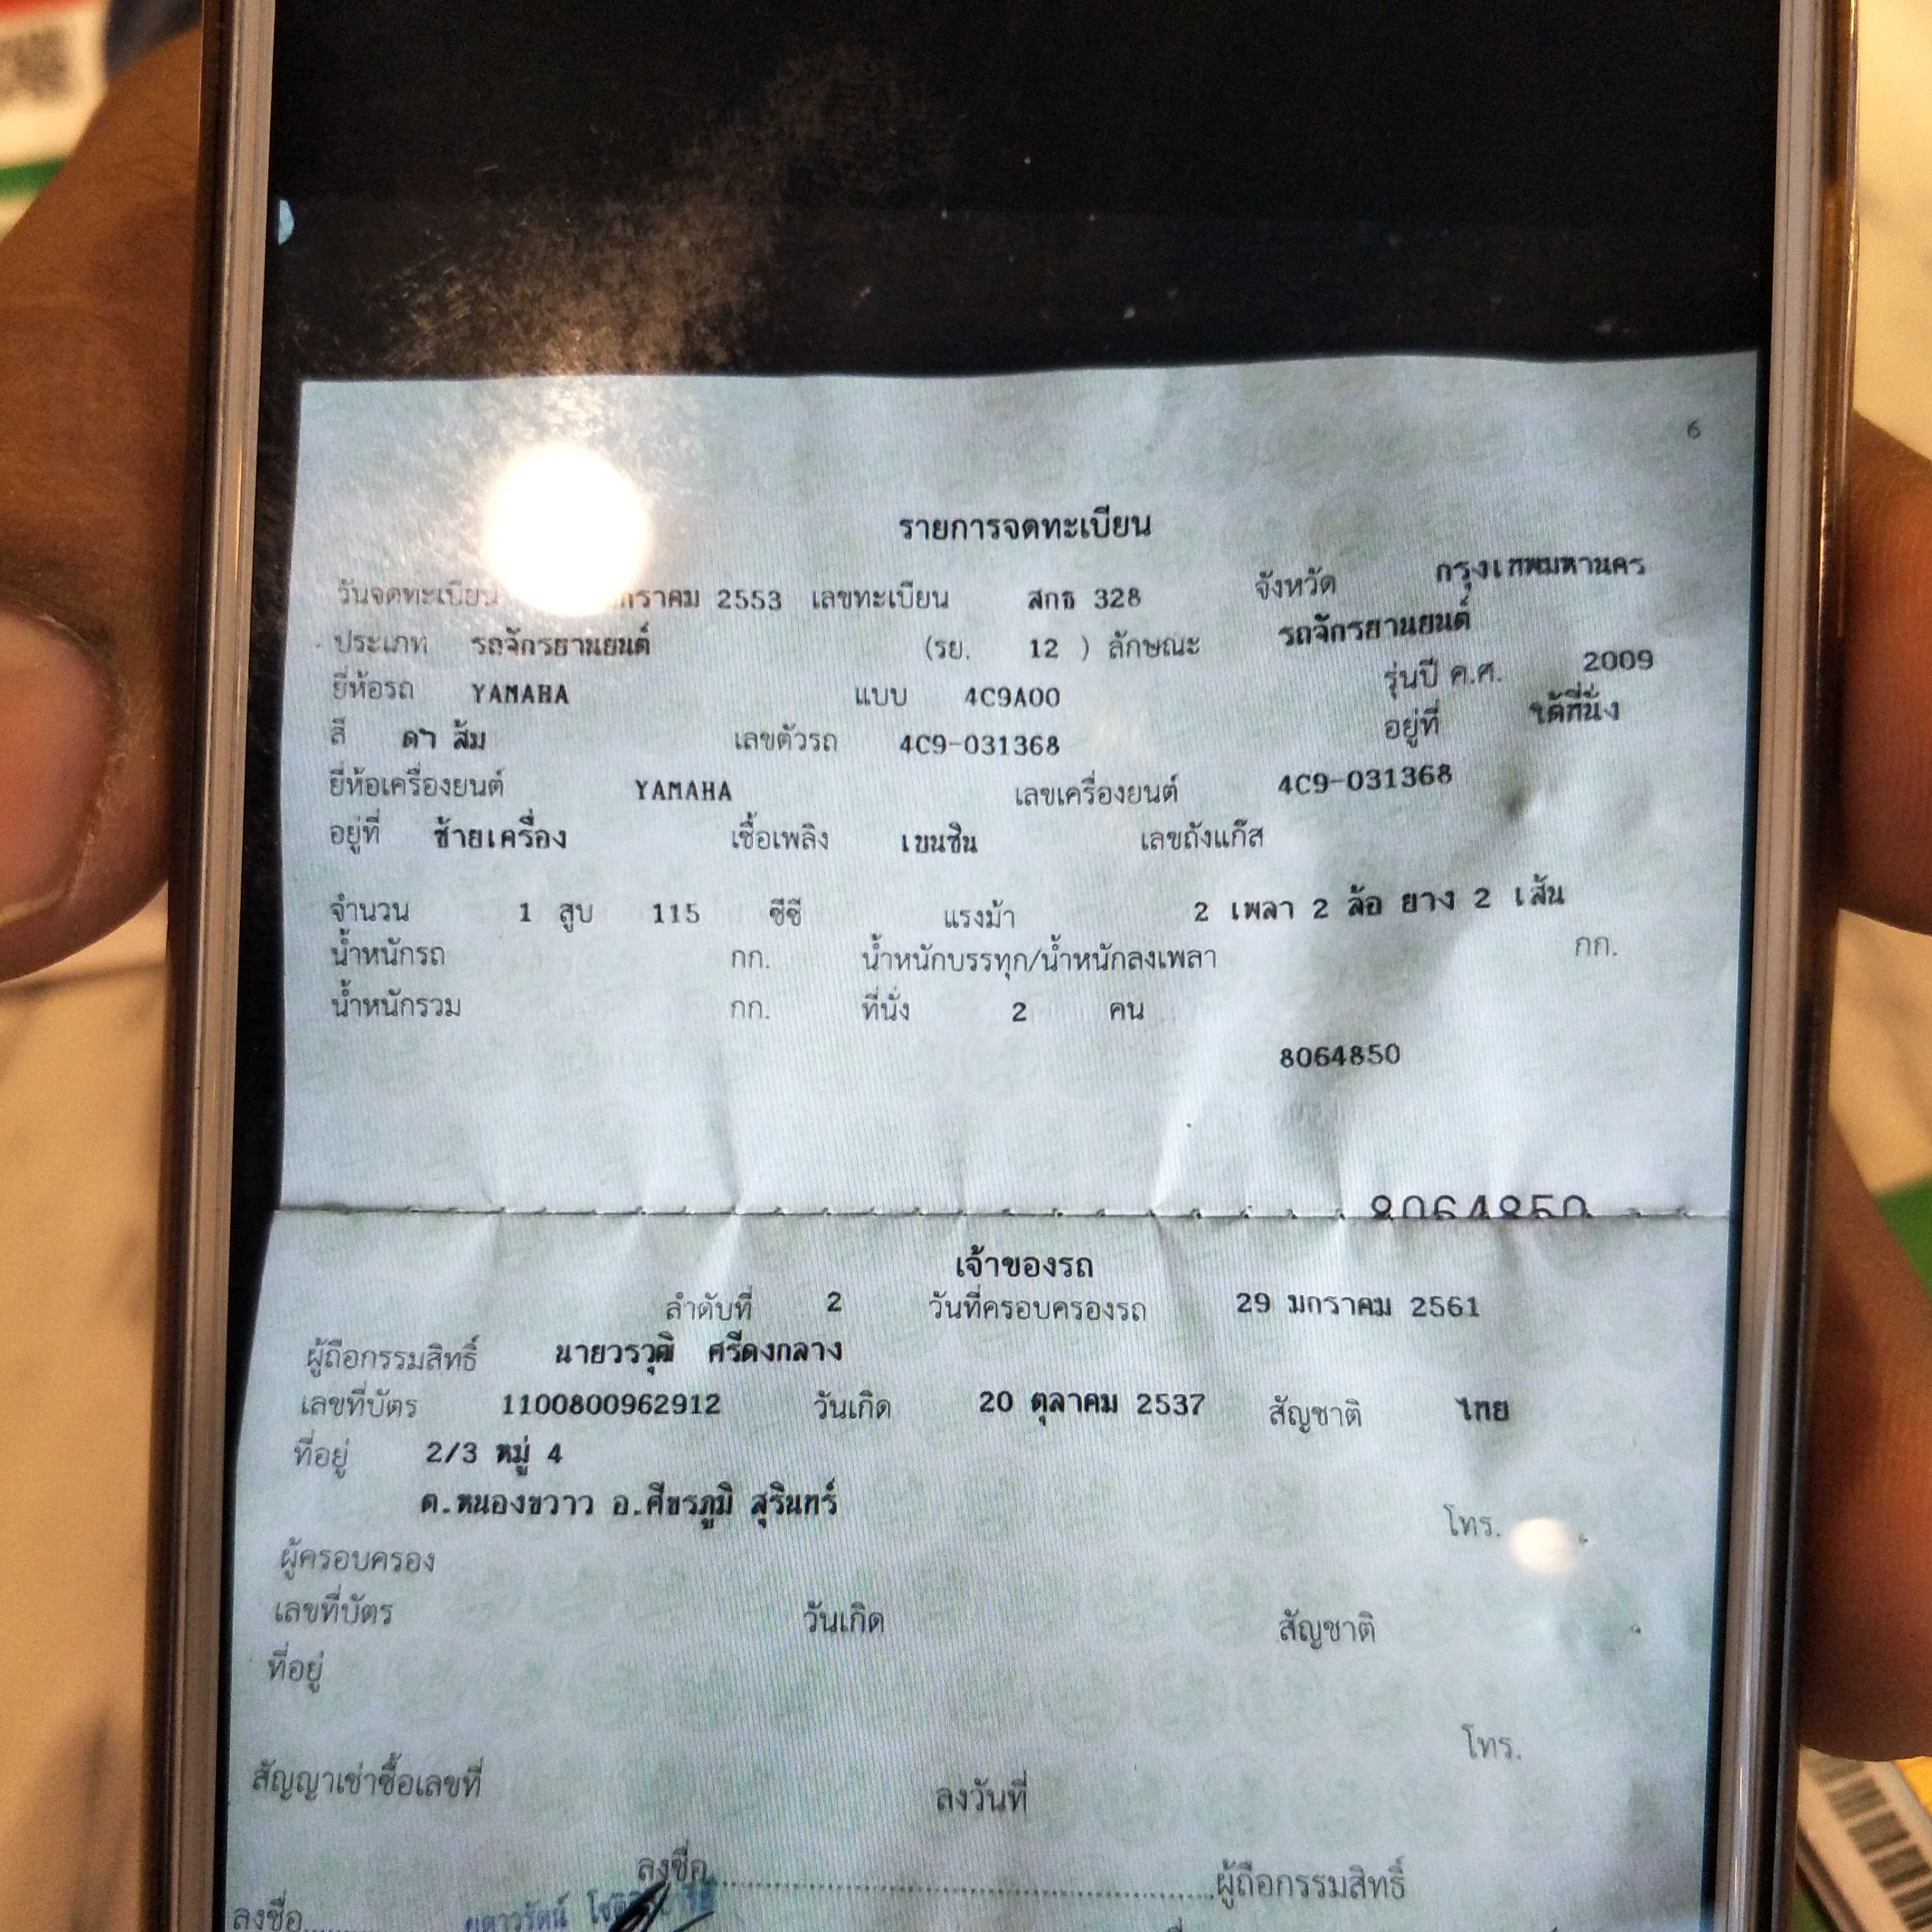 6
รายการจดทะเบียน
วันจดทะเบียน กราคม 2553 เลขทะเบียน สกธ 328 จังหวัด กรุงเทพมหานคร
ประเภท รถจักรยานยนต์ (รย. 12 ) ลักษณะ รถจักรยานยนต์
ยี่ห้อรถ YAMAHA แบบ 4C9A00 รุ่นปี ค.ศ. 2009
สี ดำ ส้ม เลขตัวรถ 4C9-031368 อยู่ที่ ใต้ที่นั่ง
ยี่ห้อเครื่องยนต์ YAMAHA เลขเครื่องยนต์ 4C9-031368
อยู่ที่ ซ้ายเครื่อง เชื้อเพลิง เบนซิน เลขถังแก๊ส
จำนวน 1 สูบ 115 ซีซี แรงม้า 2 เพลา 2 ล้อ ยาง 2 เส้น
น้ำหนักรถ กก. น้ำหนักบรรทุก/น้ำหนักลงเพลา กก.
น้ำหนักรวม กก. ที่นั่ง 2 คน
8064850
8064850
เจ้าของรถ
ลำดับที่ 2 วันที่ครอบครองรถ 29 มกราคม 2561
ผู้ถือกรรมสิทธิ์ นายวรวุฒิ ศรีดงกลาง
เลขที่บัตร 1100800962912 วันเกิด 20 ตุลาคม 2537 สัญชาติ ไทย
ที่อยู่ 2/3 หมู่ 4
ต.หนองขวาว อ.ศีขรภูมิ สุรินทร์
โทร.
ผู้ครอบครอง
เลขที่บัตร วันเกิด สัญชาติ
ที่อยู่
โทร.
สัญญาเช่าซื้อเลขที่ ลงวันที่
ลงชื่อ ผู้ถือกรรมสิทธิ์
ลงชื่อ